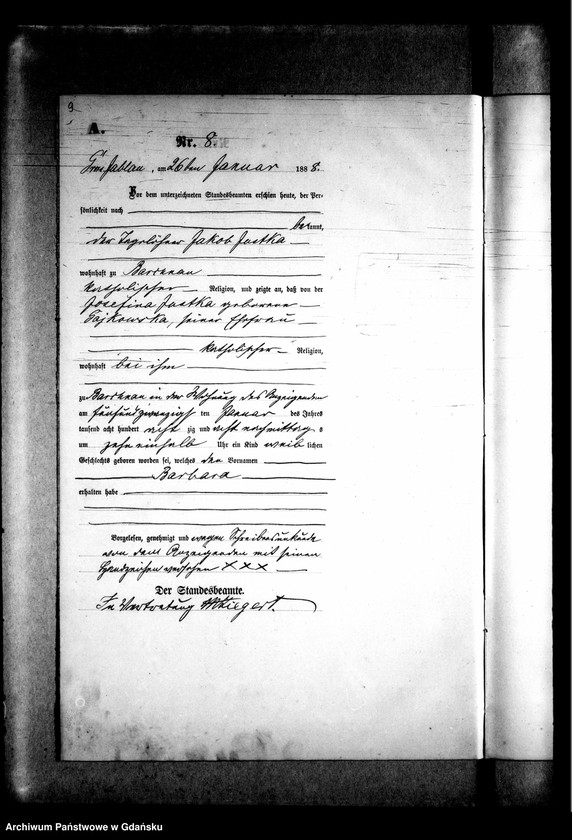 9
A.
Nr. 8.
Gross Jablau, am 26ten Januar 1888.
Vor dem unterzeichneten Standesbeamten erschien heute, der Per-
sönlichkeit nach
bekannt,
der Tagelöhner Jakob Justka
wohnhaft zu Barchnau
katholischer Religion, und zeigte an, daß von der
Josefina Justka geborene
Gajkowska, seiner Ehefrau
katholischer Religion,
wohnhaft bei ihm
zu Barchnau in der Wohnung des Anzeigenden
am fünfundzwanzigsten Januar des Jahres
tausend acht hundert acht zig und acht nachmittags
um zehn einhalb Uhr ein Kind weiblichen
Geschlechts geboren worden sei, welches den Vornamen
Barbara
erhalten habe
Vorgelesen, genehmigt und wegen Schreibensunkunde
von dem Anzeigenden mit seinen
Handzeichen versehen XXX
Der Standesbeamte.
In Vertretung
Archiwum Państwowe w Gdańsku